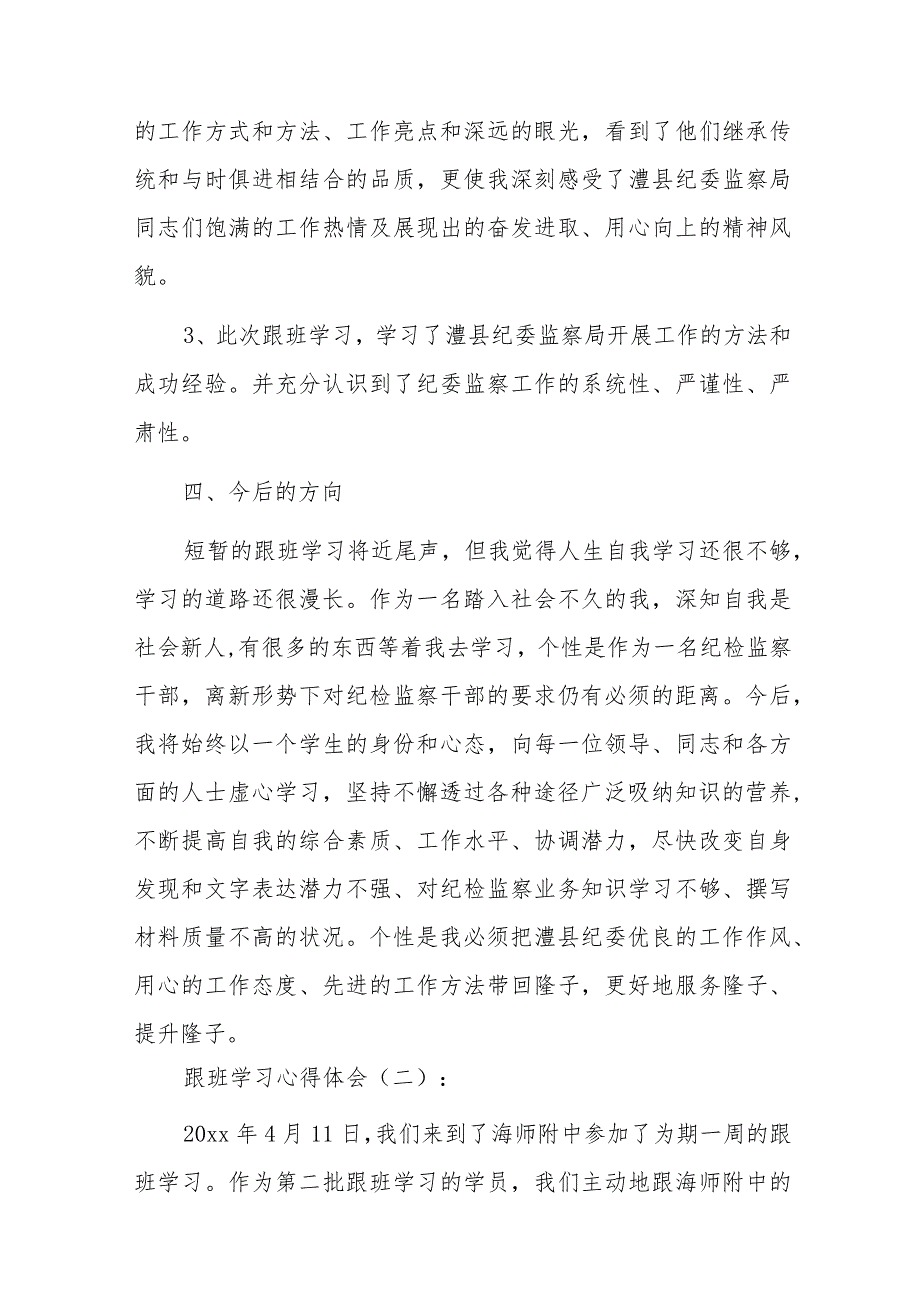 的工作方式和方法、工作亮点和深远的眼光，看到了他们继承传
统和与时俱进相结合的品质，更使我深刻感受了澧县纪委监察局
同志们饱满的工作热情及展现出的奋发进取、用心向上的精神风
貌。
3、此次跟班学习，学习了澧县纪委监察局开展工作的方法和
成功经验。并充分认识到了纪委监察工作的系统性、严谨性、严
肃性。
四、今后的方向
短暂的跟班学习将近尾声，但我觉得人生自我学习还很不够，
学习的道路还很漫长。作为一名踏入社会不久的我，深知自我是
社会新人,有很多的东西等着我去学习，个性是作为一名纪检监察
干部，离新形势下对纪检监察干部的要求仍有必须的距离。今后，
我将始终以一个学生的身份和心态，向每一位领导、同志和各方
面的人士虚心学习，坚持不懈透过各种途径广泛吸纳知识的营养，
不断提高自我的综合素质、工作水平、协调潜力，尽快改变自身
发现和文字表达潜力不强、对纪检监察业务知识学习不够、撰写
材料质量不高的状况。个性是我必须把澧县纪委优良的工作作风、
用心的工作态度、先进的工作方法带回隆子，更好地服务隆子、
提升隆子。
跟班学习心得体会（二）：
20xx 年 4 月 11 日,我们来到了海师附中参加了为期一周的跟
班学习。作为第二批跟班学习的学员，我们主动地跟海师附中的